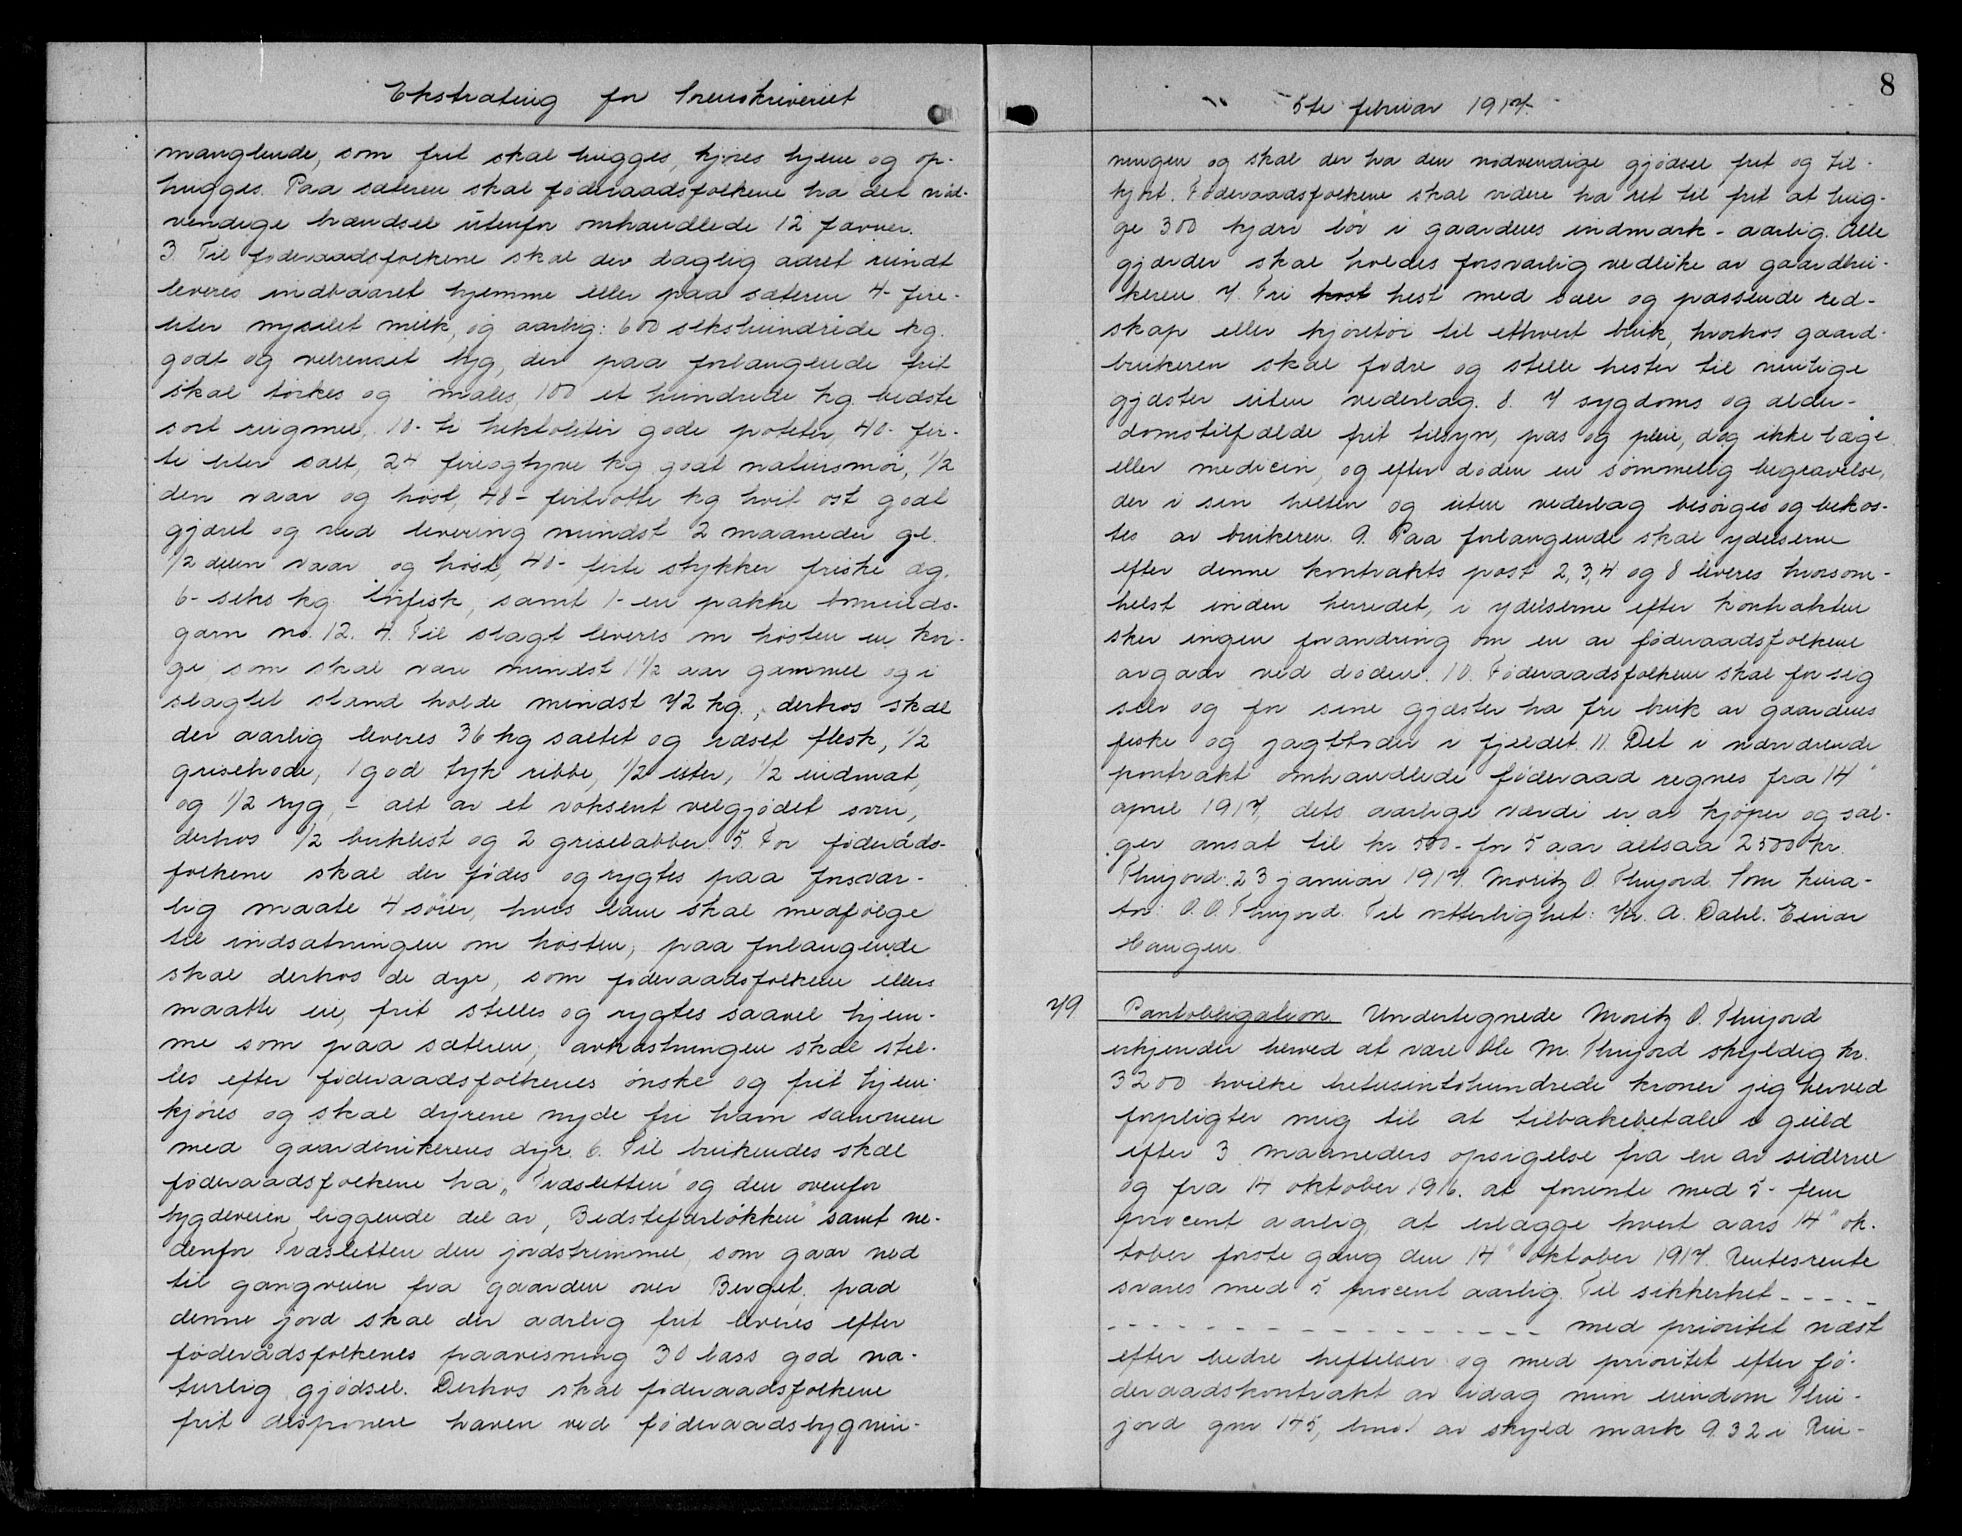 Ekstrating for Sorenskriveriet
manglende, som frit skal hugges, kjøres hjem og op-
hugges. Paa sæteren skal føderaadsfolkene ha det nød-
vendige brændsel utenfor omhandlede 12 favner.
3. Til føderaadsfolkene skal der daglig aaret rundt
leveres indbaaret hjemme eller paa sæteren 4- fire-
liter nysilet melk, og aarlig: 600 sekshundrede kg.
godt og velrenset byg, der paa forlangende frit
skal tørkes og males, 100 et hundrede kg. bedste
sort rugmel, 10- ti hektoliter gode poteter, 40- fir-
ti liter salt, 24 fireogtyve kg godt natursmør, 1/2
den vaar og høst, 48- firtiotte kg hvit ost godt
gjæret og ved levering mindst 2 maaneder gl.
1/2 delen vaar og høst, 40- firti stykker friske æg.
6- seks kg. lutfisk, samt 1- en pakke bomulds-
garn no. 12. 4. Til slagt leveres om høsten en kvi-
ge, som skal være mindst 1 1/2 aar gammel og i
slagtet stand holde mindst 72 kg., derhos skal
der aarlig leveres 36 kg saltet og spekt flesk, 1/2
grisehode, 1 god tyk ribbe, 1/2 ister, 1/2 indmat,
og 1/2 ryg, - alt av et voksent velgjødet svin,
derhos 1/2 buklist og 2 griselabber. 5. For føderåds-
folkene skal der fødes og rygtes paa forsvar-
lig maate 4 søier, hvis lam skal medfølge
til indsætningen om høsten, paa forlangende
skal derhos de dyr, som føderaadsfolkene ellers
maatte eie, frit stelles og rygtes saavel hjem-
me som paa sæteren, avkastningen skal stel-
les efter føderaadsfolkenes ønske og frit hjem-
kjøres og skal dyrene nyde fri havn sammen
med gaardbrukerens dyr. 6. Til brukendes skal
føderaadsfolkene ha „Træsletten" og den ovenfor
bygdeveien liggende del av „Bedstefarløkken" samt ne-
denfor Træsletten den jordstrimmel, som gaar ned
til gangveien fra gaarden over Berget, paa
denne jord skal der aarlig frit leveres efter
føderådsfolkenes paavisning 30 lass god na-
turlig gjødsel. Derhos skal føderaadsfolkene
frit disponere haven ved føderaadsbygnin-
8
5te februar 1917.
ningen og skal der ha den nødvendige gjødsel frit og til-
kjørt. Føderaadsfolkene skal videre ha ret til frit at hug-
ge 300 kjærv løv i gaardens indmark - aarlig. Alle
gjærder skal holdes forsvarlig vedlike av gaardbru-
keren. 7. Fri kost hest med sæle og passende red-
skap eller kjøretøi til ethvert bruk, hvorhos gaard-
brukeren skal fødre og stelle hester til mulige
gjæster uten vederlag. 8. I sygdoms og alder-
domstilfælde frit tilsyn, pas og pleie, dog ikke læge
eller medicin, og efter døden en sømmelig begravelse,
der i sin helhet og uten vederlag besørges og bekos-
tes av brukeren. 9. Paa forlangende skal ydelserne
efter denne kontrakts post 2, 3, 4 og 8 leveres hvorsom-
helst inden herredet, i ydelserne efter kontrakten
sker ingen forandring om en av føderaadsfolkene
avgaar ved døden. 10. Føderaadsfolkene skal for sig
selv og for sine gjæster ha fri bruk av gaardens
fiske og jagtboder i fjeldet. 11. Det i nærværende
kontrakt omhandlede føderaad regnes fra 14"
april 1917, dets aarlige værdi er av kjøper og sæl-
ger ansat til kr. 500- for 5 aar altsaa 2500 kr.
Thujord 23 januar 1917. Moritz O. Thujord. Som kura-
tor: O. O. Thujord. Til vitterlighet: Kr. A. Dahl. Einar
Haugen.
79 Pantobligation. Undertegnede Moritz O. Thujord
erkjender herved at være Ole M. Thujord skyldig kr.
3200 hvilke tretusintohundrede kroner jeg herved
forpligter mig til at tilbakebetale i guld
efter 3 maaneders opsigelse fra en av siderne
og fra 14 oktober 1916. at forrente med 5- fem
procent aarlig, at erlægge hvert aars 14" ok-
tober første gang den 14" oktober 1917. Rentesrente
svares med 5 procent aarlig. Til sikkerhet - - - - -
- - - - - - - - - - - - - - med prioritet næst
efter bedre heftelser og med prioritet efter fø-
deraadskontrakt av idag min eiendom Thu-
jord gnr 145, bno 1 av skyld mark 9.32 i Rin-